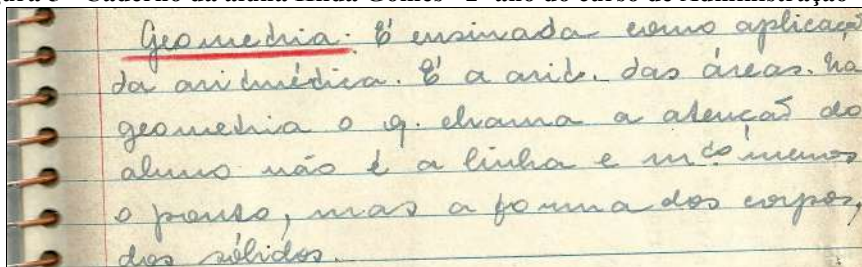 Figura 3 – Caderno da aluna Hilda Gomes – 2º ano do curso de Administração
Geometria. É ensinada como aplicaçã
da aritmética. É a arit. das áreas. Na
geometria o q. chama a atenção do
aluno não é a linha e mto menos
o ponto, mas a forma dos corpos,
dos sólidos.